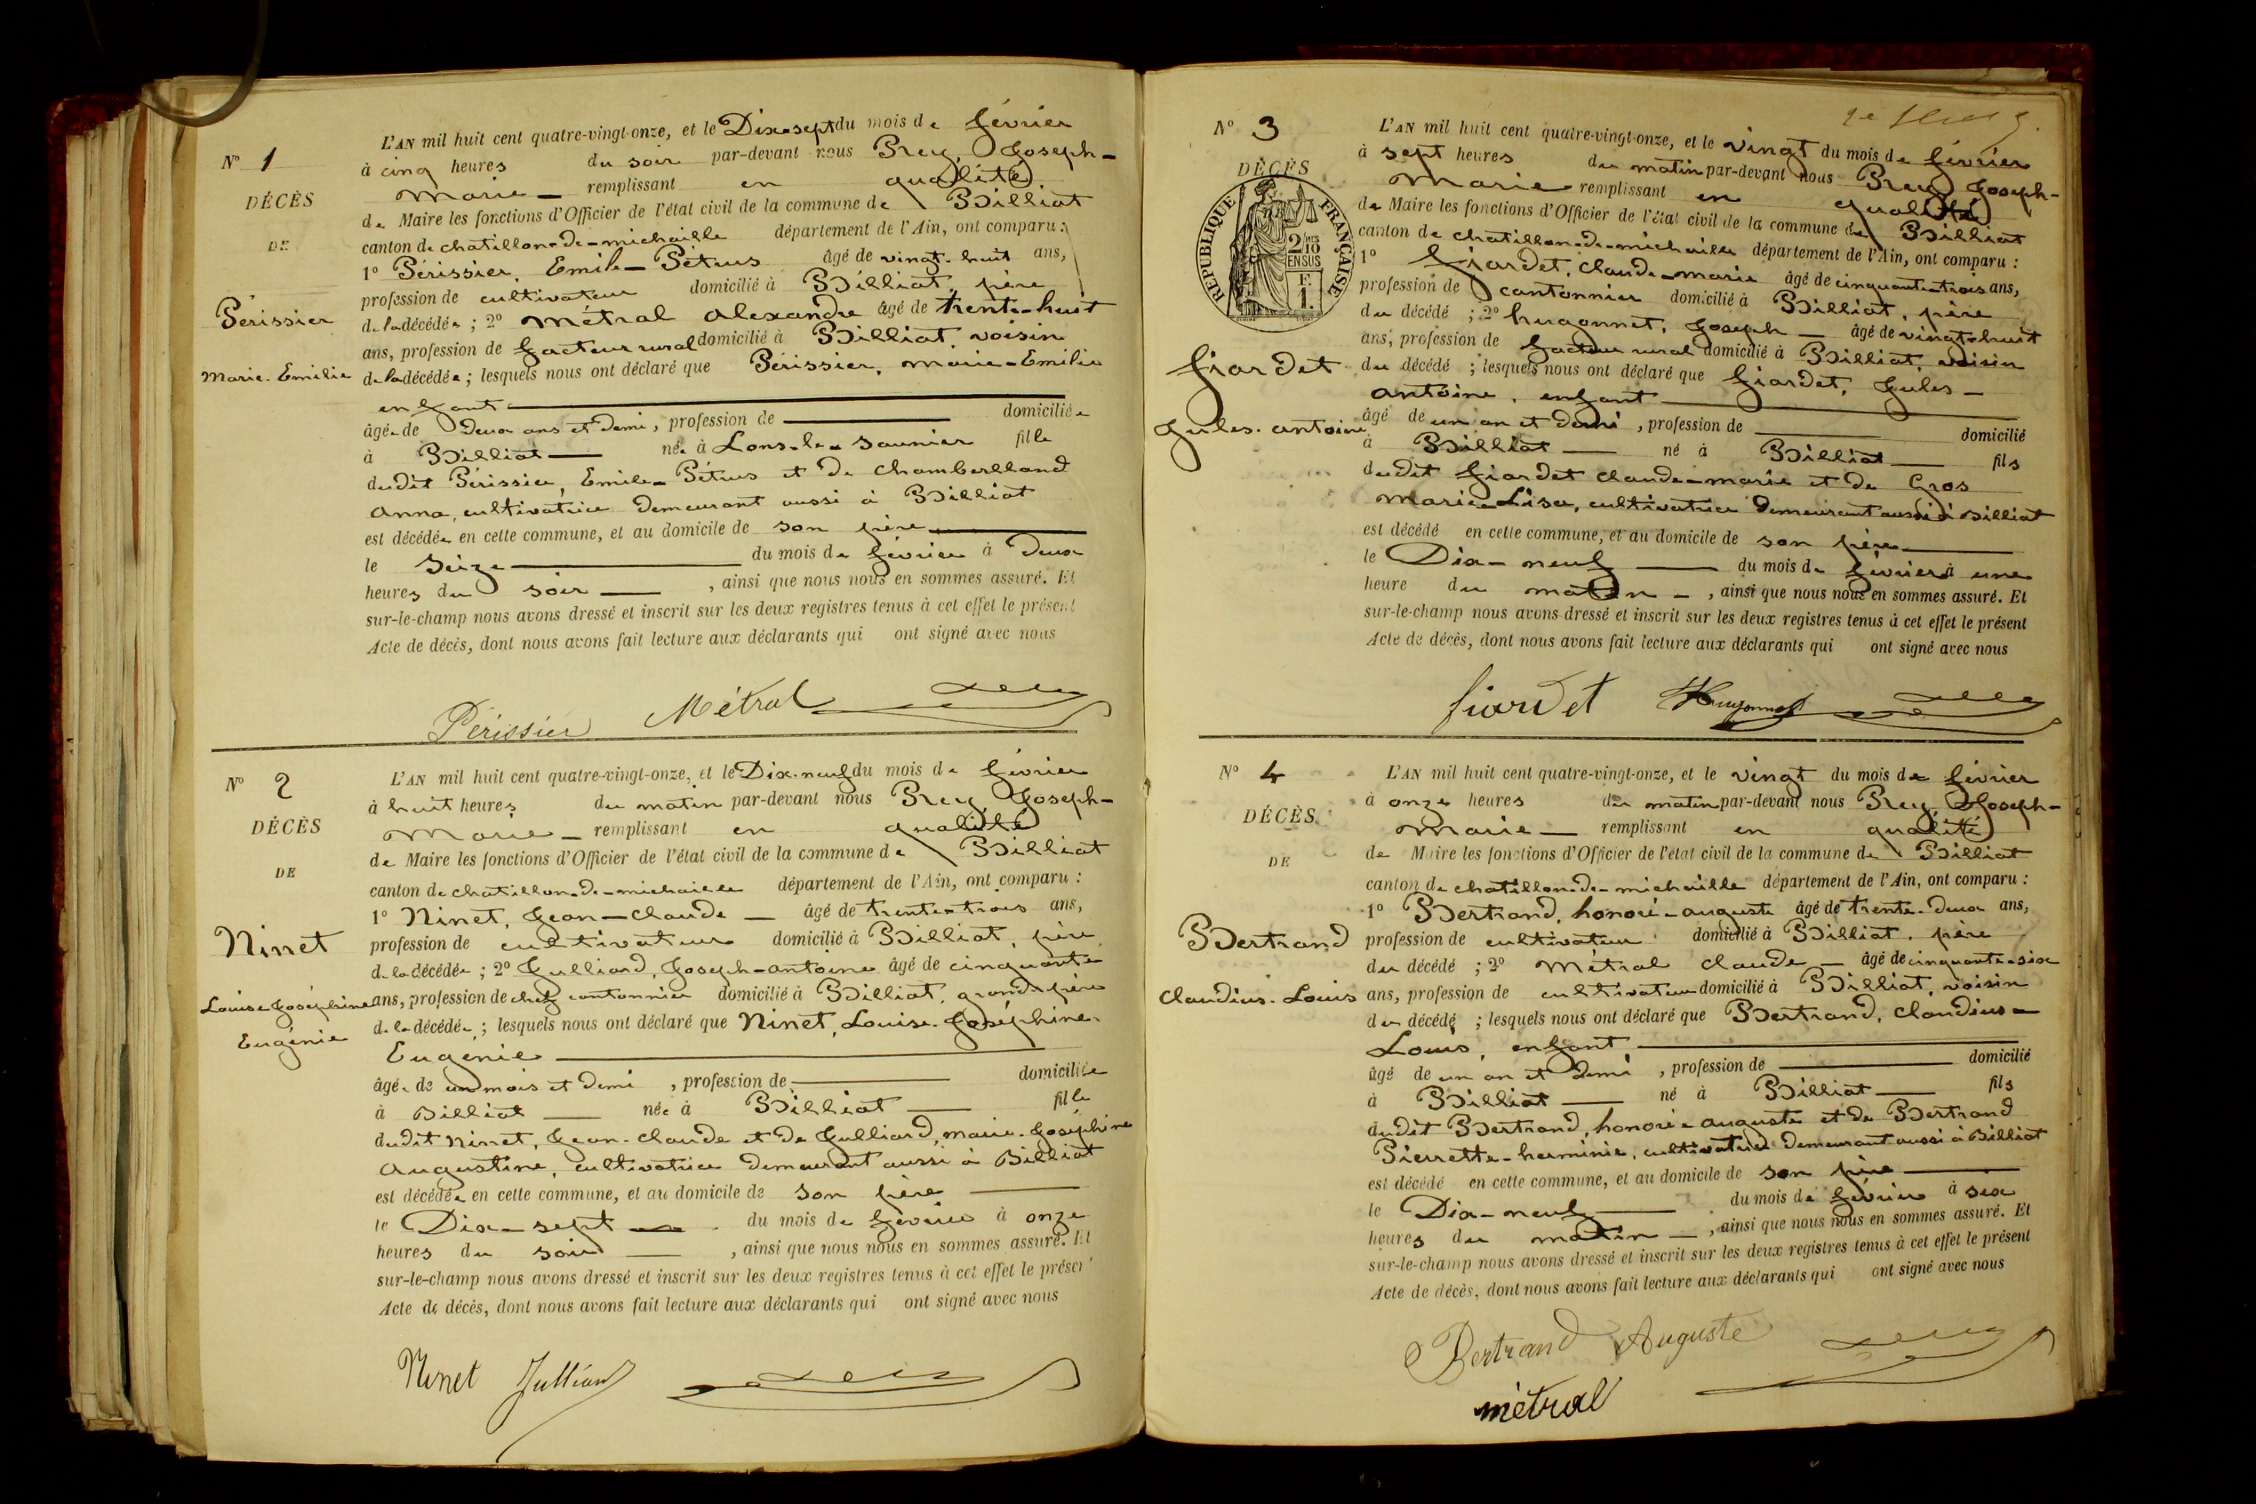 N° 1
DÉCÈS
DE
Périssier
Marie-Emilie
L'AN mil huit cent quatre-vingt-onze, et le Dix-sept du mois de février
à cinq heures du soir par-devant nous Prey, Joseph-
Marie — remplissant en qualité
de Maire les fonctions d'Officier de l'état civil de la commune de Billiat
canton de chatillon-de-michaille département de l'Ain, ont comparu :
1° Périssier, Emile-Pétrus âgé de vingt-huit ans,
profession de cultivateur domicilié à Billiat, père
de la décédée ; 2° Métral Alexandre âgé de trente-huit
ans, profession de facteur rural domicilié à Billiat, voisin
de la décédée ; lesquels nous ont déclaré que Périssier, Marie-Emilie
enfant
âgée de Deux ans et demi, profession de — domiciliée
à Billiat — née à Lons-le-Saunier fille
dudit Périssier, Emile-Pétrus et de Chambelland
Anna, cultivatrice demeurant aussi à Billiat
est décédée en cette commune, et au domicile de son père
le Seize — du mois de février à Deux
heures du soir — , ainsi que nous nous en sommes assuré. Et
sur-le-champ nous avons dressé et inscrit sur les deux registres tenus à cet effet le présent
Acte de décès, dont nous avons fait lecture aux déclarants qui ont signé avec nous
Périssier Métral
N° 2
DÉCÈS
DE
Ninet
Louise Joséphine
Eugénie
L'AN mil huit cent quatre-vingt-onze, et le Dix-neuf du mois de février
à huit heures du matin par-devant nous Prey, Joseph-
Marie — remplissant en qualité
de Maire les fonctions d'Officier de l'état civil de la commune de Billiat
canton de chatillon-de-michaille département de l'Ain, ont comparu :
1° Ninet, Jean-Claude — âgé de trente-trois ans,
profession de cultivateur domicilié à Billiat, père
de la décédée ; 2° Julliard, Joseph-Antoine âgé de cinquante
ans, profession de chef cantonnier domicilié à Billiat, grand-père
de la décédée ; lesquels nous ont déclaré que Ninet, Louise-Joséphine-
Eugénie
âgée de un mois et demi , profession de — domiciliée
à Billiat — née à Billiat — fille
dudit Ninet, Jean-Claude et de Julliard, Marie-Joséphine
Augustine, cultivatrice demeurant aussi à Billiat
est décédée en cette commune, et au domicile de son père
le Dix-sept — du mois de février à onze
heures du soir — , ainsi que nous nous en sommes assuré. Et
sur-le-champ nous avons dressé et inscrit sur les deux registres tenus à cet effet le présent
Acte de décès, dont nous avons fait lecture aux déclarants qui ont signé avec nous
Ninet Julliard
N° 3
DÉCÈS
RÉPUBLIQUE FRANÇAISE
2/10
EN SUS
F.
1.
Fiardet
Jules-Antoine
L'AN mil huit cent quatre-vingt-onze, et le vingt du mois de février
à sept heures du matin par-devant nous Prey, Joseph-
Marie remplissant en qualité
de Maire les fonctions d'Officier de l'état civil de la commune de Billiat
canton de chatillon-de-michaille département de l'Ain, ont comparu :
1° Fiardet, Claude-Marie âgé de cinquante-trois ans,
profession de cantonnier domicilié à Billiat, père
du décédé ; 2° hugonnet, Joseph — âgé de vingt-huit
ans, profession de facteur rural domicilié à Billiat, voisin
du décédé ; lesquels nous ont déclaré que Fiardet, Jules-
Antoine, enfant
âgé de un an et demi , profession de — domicilié
à Billiat — né à Billiat — fils
dudit Fiardet Claude-Marie et de Gros
Marie-Lise, cultivatrice demeurant aussi à Billiat
est décédé en cette commune, et au domicile de son père
le Dix-neuf — du mois de février à une
heure du matin — , ainsi que nous nous en sommes assuré. Et
sur-le-champ nous avons dressé et inscrit sur les deux registres tenus à cet effet le présent
Acte de décès, dont nous avons fait lecture aux déclarants qui ont signé avec nous
fiardet Hugonnet
N° 4
DÉCÈS
DE
Bertrand
Claudius-Louis
L'AN mil huit cent quatre-vingt-onze, et le vingt du mois de février
à onze heures du matin par-devant nous Prey, Joseph-
Marie — remplissant en qualité
de Maire les fonctions d'Officier de l'état civil de la commune de Billiat
canton de chatillon-de-michaille département de l'Ain, ont comparu :
1° Bertrand, honoré-auguste âgé de trente-deux ans,
profession de cultivateur domicilié à Billiat, père
du décédé ; 2° Métral Claude — âgé de cinquante-six
ans, profession de cultivateur domicilié à Billiat, voisin
du décédé ; lesquels nous ont déclaré que Bertrand, Claudius-
Louis, enfant
âgé de un an et demi , profession de — domicilié
à Billiat — né à Billiat — fils
dudit Bertrand, honoré-auguste et de Bertrand
Pierrette-herminie, cultivatrice demeurant aussi à Billiat
est décédé en cette commune, et au domicile de son père
le Dix-neuf — du mois de février à six
heures du matin — , ainsi que nous nous en sommes assuré. Et
sur-le-champ nous avons dressé et inscrit sur les deux registres tenus à cet effet le présent
Acte de décès, dont nous avons fait lecture aux déclarants qui ont signé avec nous
Bertrand Auguste
métral